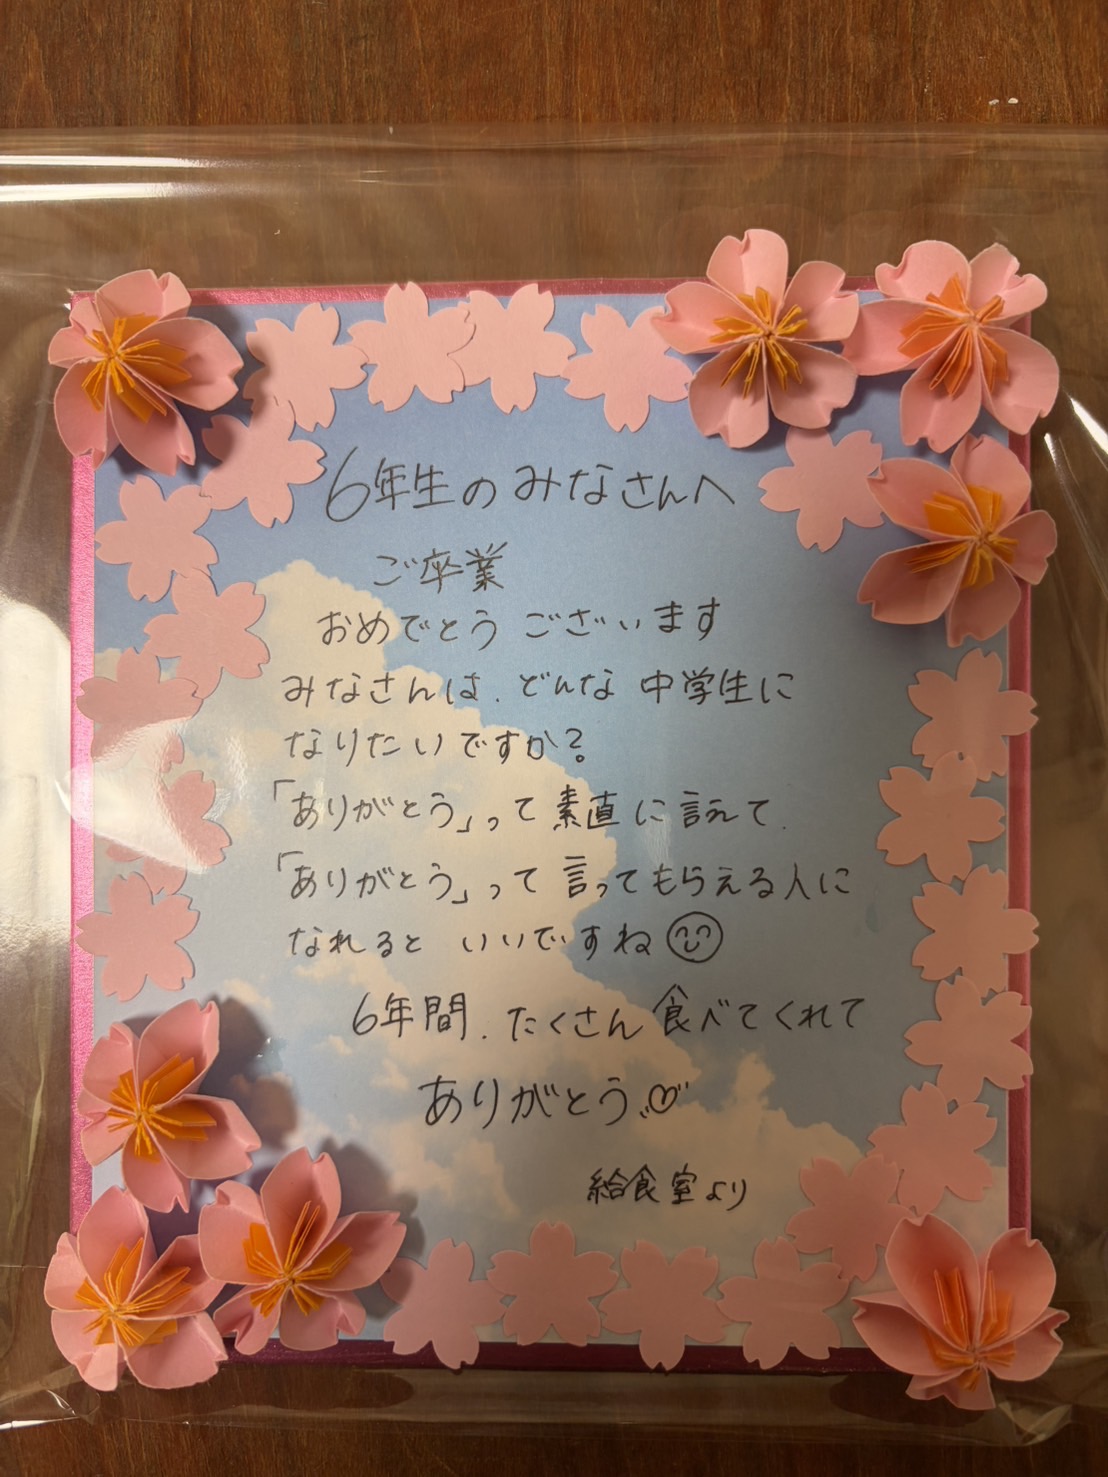 6年生のみなさんへ
ご卒業
おめでとうございます
みなさんは、どんな中学生に
なりたいですか?
「ありがとう」って素直に言えて、
「ありがとう」って言ってもらえる人に
なれると いいですね
6年間、たくさん食べてくれて
ありがとう♡
給食室より